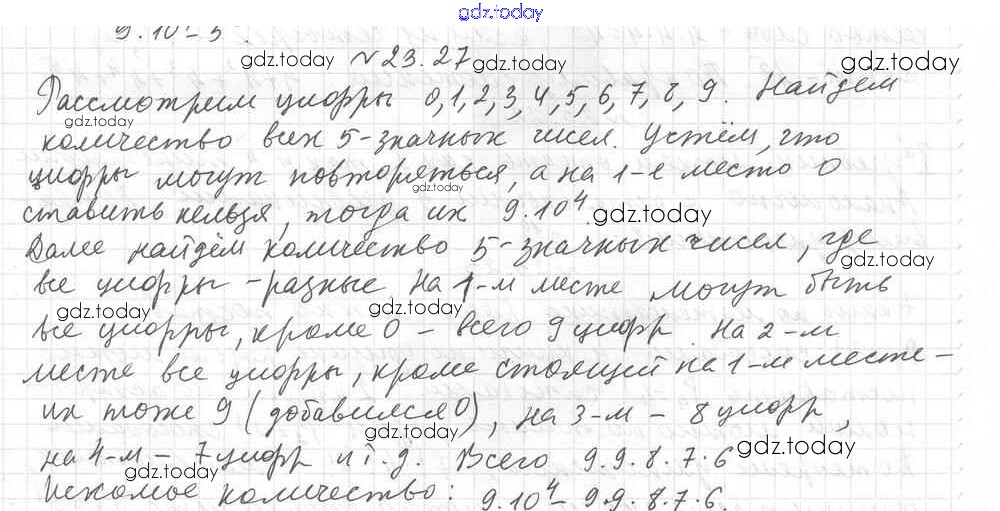 gdz.today
9·10 – 5.
gdz.today № 23.27 gdz.today gdz.today
Рассмотрим цифры 0, 1, 2, 3, 4, 5, 6, 7, 8, 9. Найдём
gdz.today
количество всех 5-значных чисел. Учтём, что
цифры могут повторяться, а на 1-е место 0
gdz.today
ставить нельзя, тогда их 9·10⁴. gdz.today
Далее найдём количество 5-значных чисел, где
gdz.today
все цифры – разные. На 1-м месте могут быть
gdz.today gdz.today
все цифры, кроме 0 – всего 9 цифр. На 2-м
месте все цифры, кроме стоящей на 1-м месте –
их тоже 9 (добавился 0), на 3-м – 8 цифр,
gdz.today
на 4-м – 7 цифр и т. д. Всего 9·9·8·7·6
gdz.today gdz.today
Искомое количество: 9·10⁴ – 9·9·8·7·6.